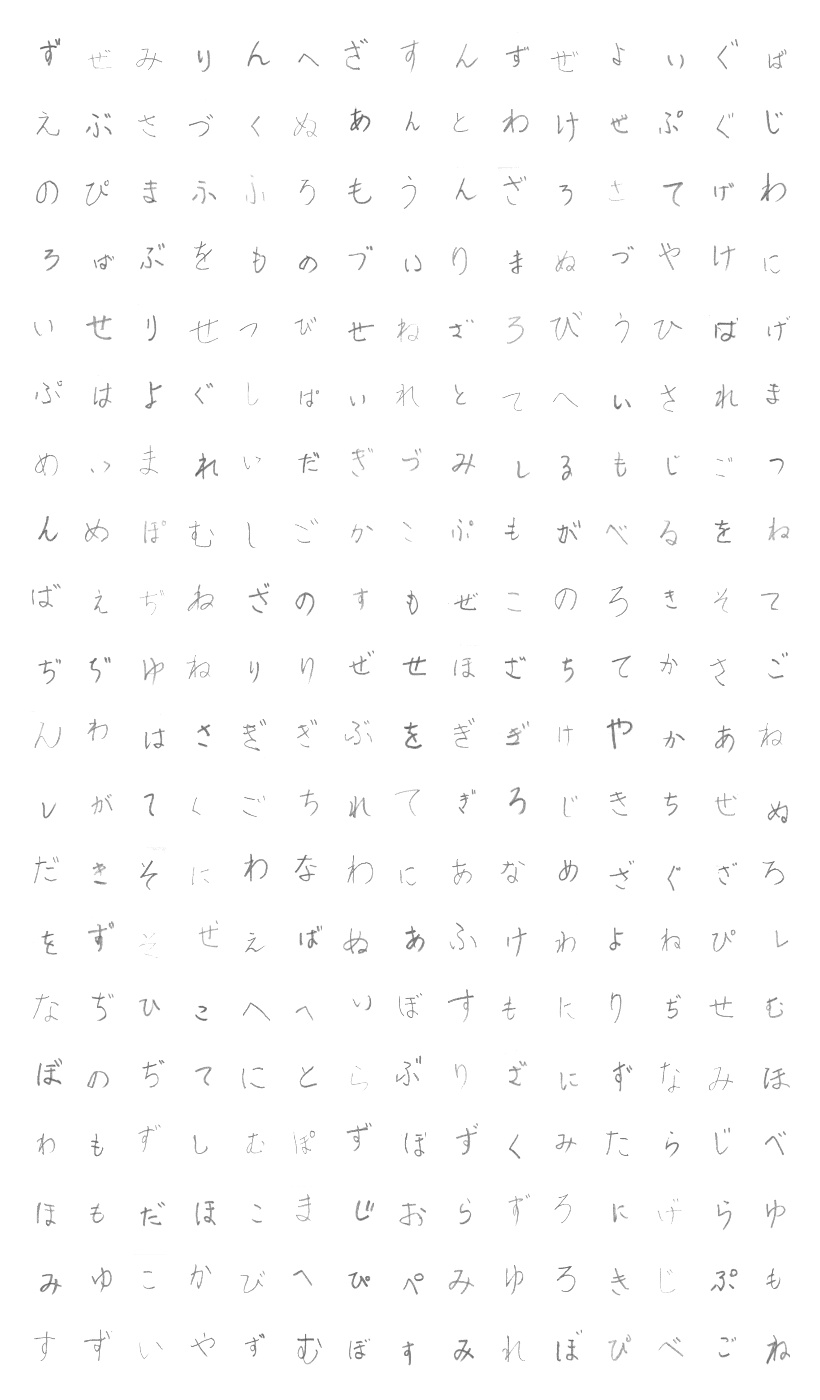 ずぜみりんへざすんずぜよいぐば
えぶさづくぬあんとわけぜぷぐじ
のぴまふふろもうんざろさてげわ
ろばぶをものづいりまぬづやけに
いせりせつびせねざろびうひばげ
ぷはよぐしぱいれとてへいされま
めいまれいだぎづみしるもじごつ
んめぽむしごかこぷもがべるをね
ばえぢねざのすもぜこのろきそて
ぢぢゆねりりぜせほざちてかさご
んわはさぎぎぶをぎぎけやかあね
しがてくごちれてぎろじきちぜぬ
だきそにわなわにあなめざぐざろ
をずそぜえばぬあふけわよねぴし
なぢひこへへいぼすもにりぢせむ
ぼのぢてにとらぶりざにずなみほ
わもずしむぽずぼずくみたらじべ
ほもだほこまじおらずろにげらゆ
みゆこかびへぴぺみゆろきじぷも
すずいやずむぼすみれぼぴべごね